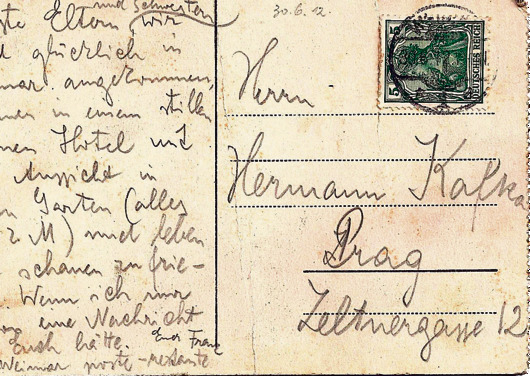 und Schwestern
ste Eltern, wir
d glücklich in
mar angekommen,
nen in einem stillen
nen Hotel mit
Aussicht in
n Garten (alles
2 M) und leben
schauen zufrie-
Wenn ich nur
eine Nachricht
Euch hätte. Euer Franz
Weimar poste-restante
30.6.12.
5
5
DEUTSCHES REICH
Herrn
Hermann Kafka
Prag
Zeltnergasse 12